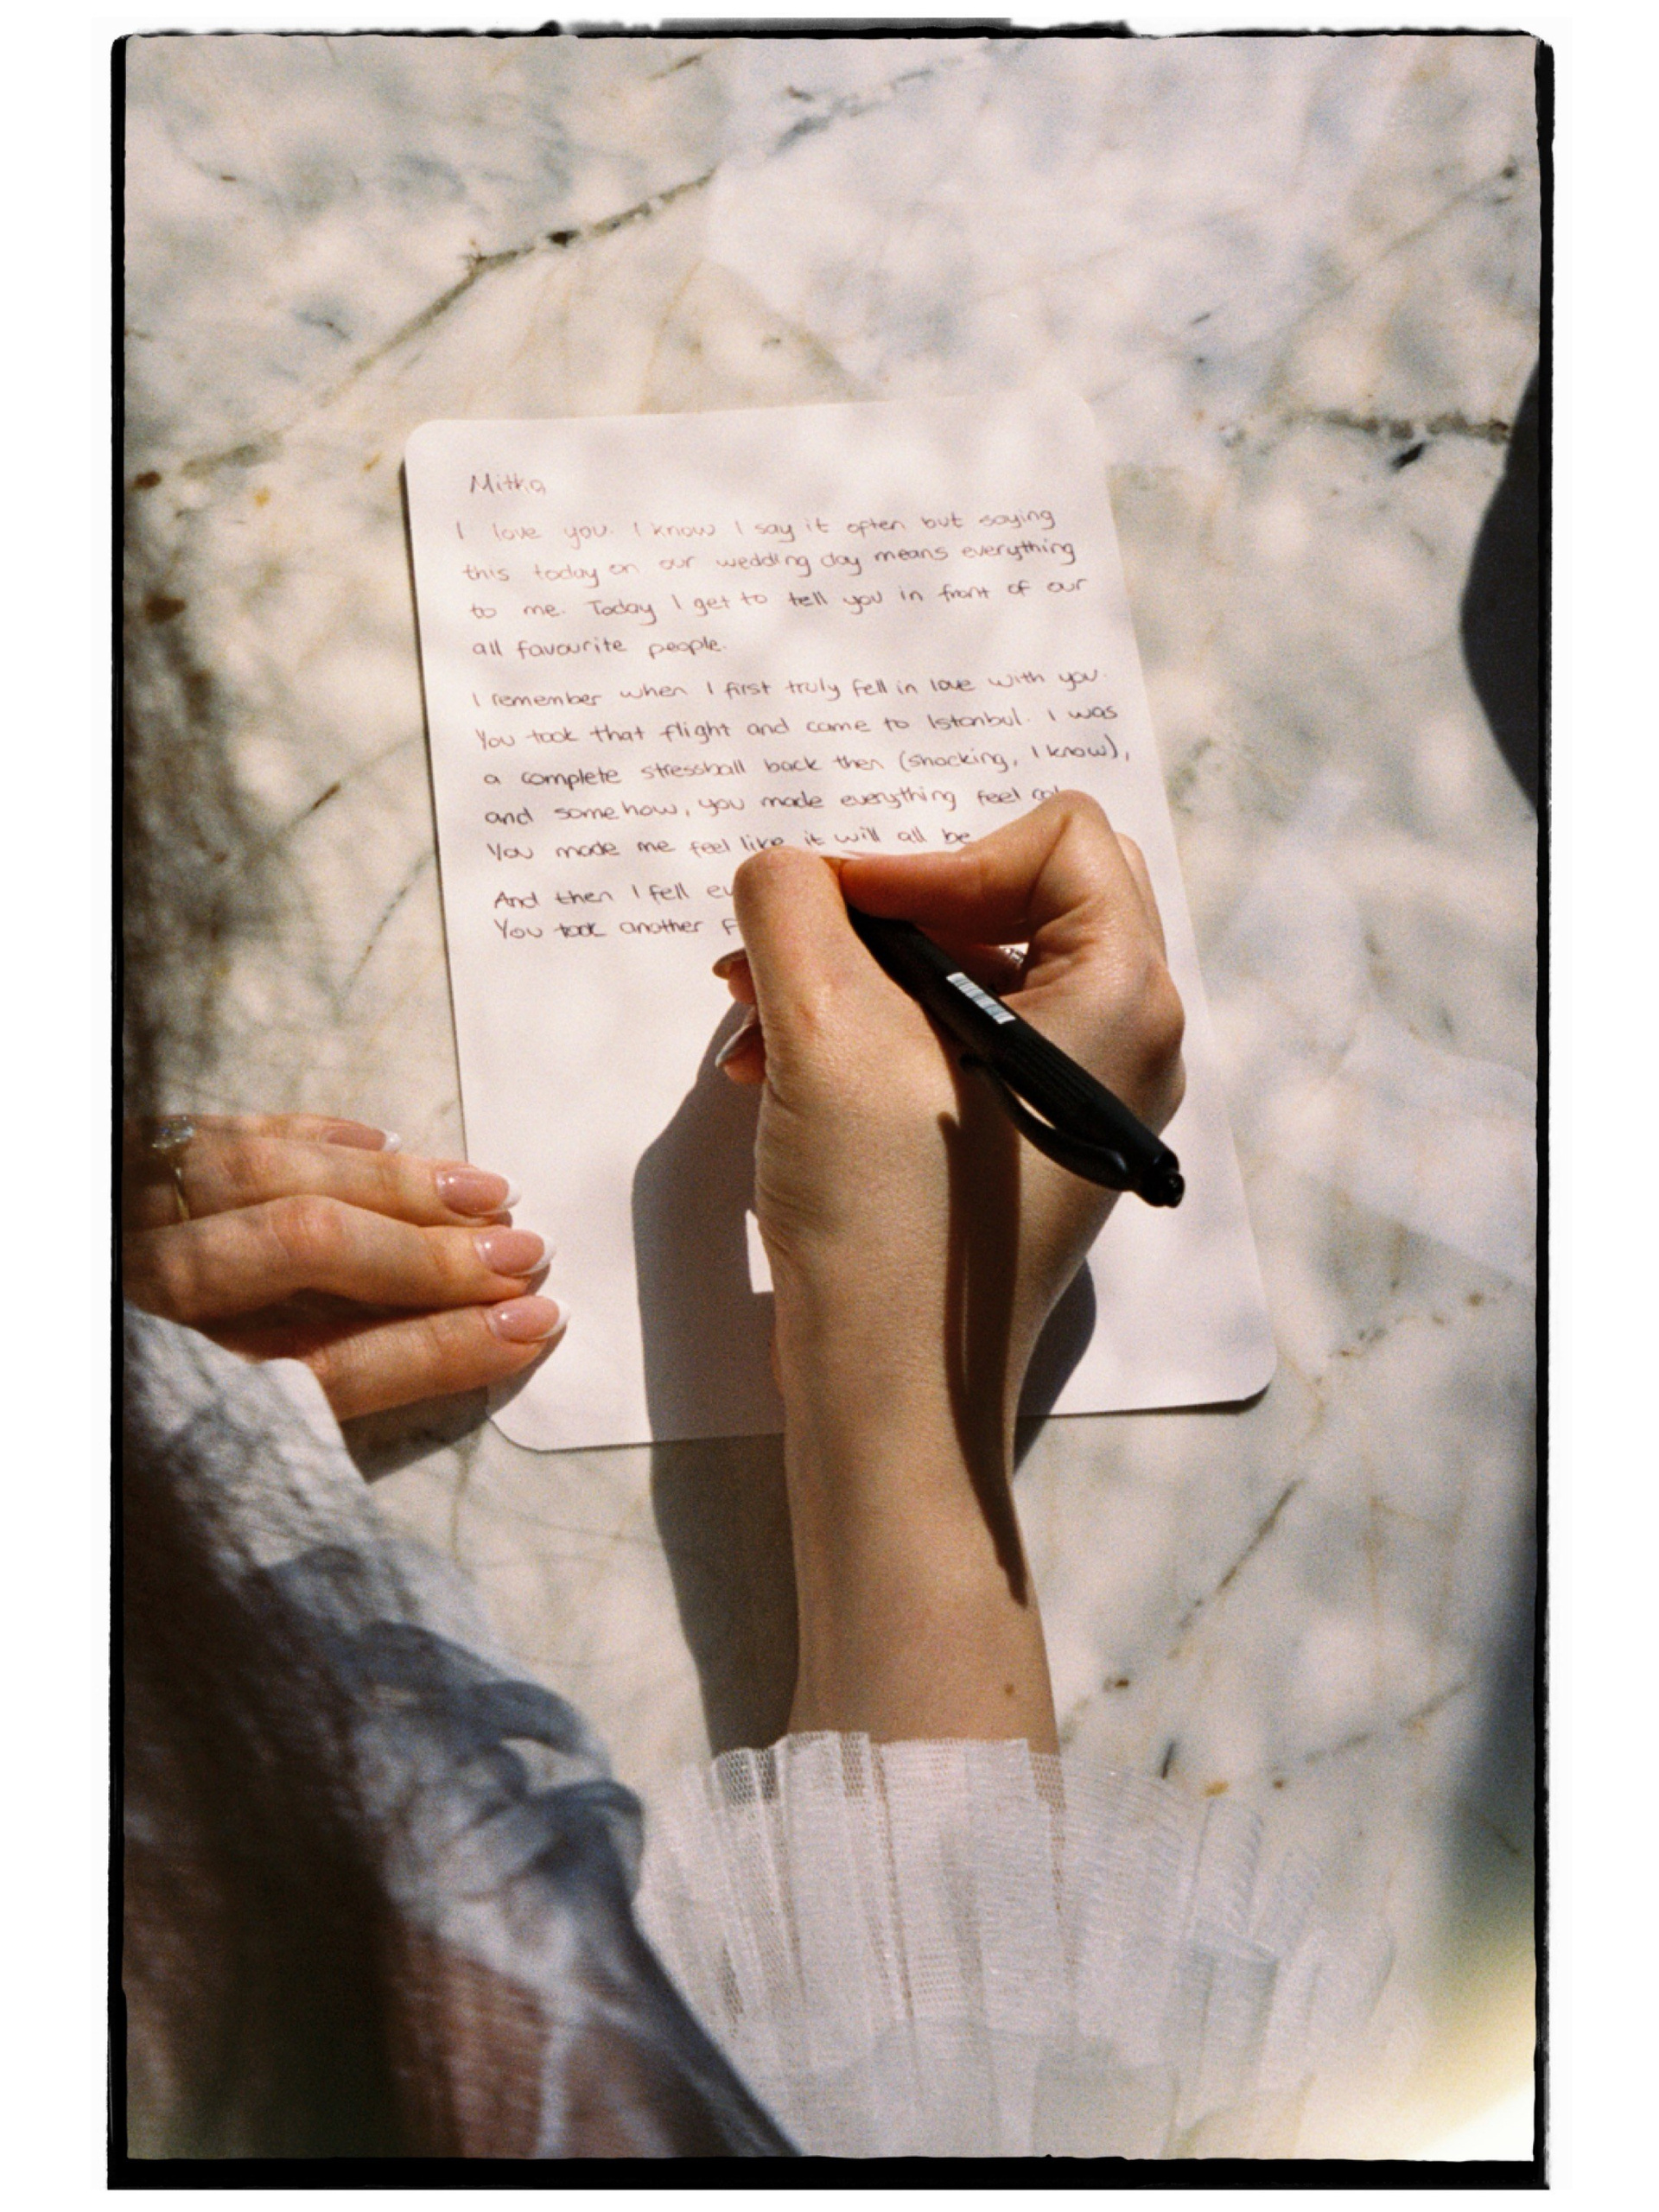 Mitko
I love you. I know I say it often but saying
this today on our wedding day means everything
to me. Today I get to tell you in front of our
all favourite people.
I remember when I first truly fell in love with you.
You took that flight and came to Istanbul. I was
a complete stressball back then (shocking, I know),
and somehow, you made everything feel
You made me feel like it will all be
And then I fell
You took another